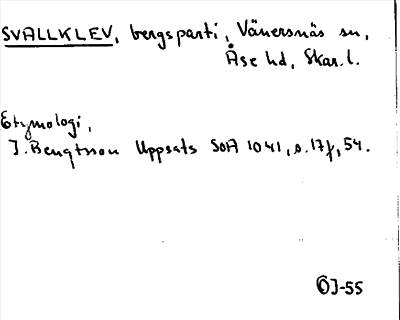 SVALLKLEV, bergsparti, Vänersnäs sn,
Åse hd, Skar. l.
Etymologi,
J. Bengtsson Uppsats SOA 1041, s. 17f, 54.
ÖJ-55